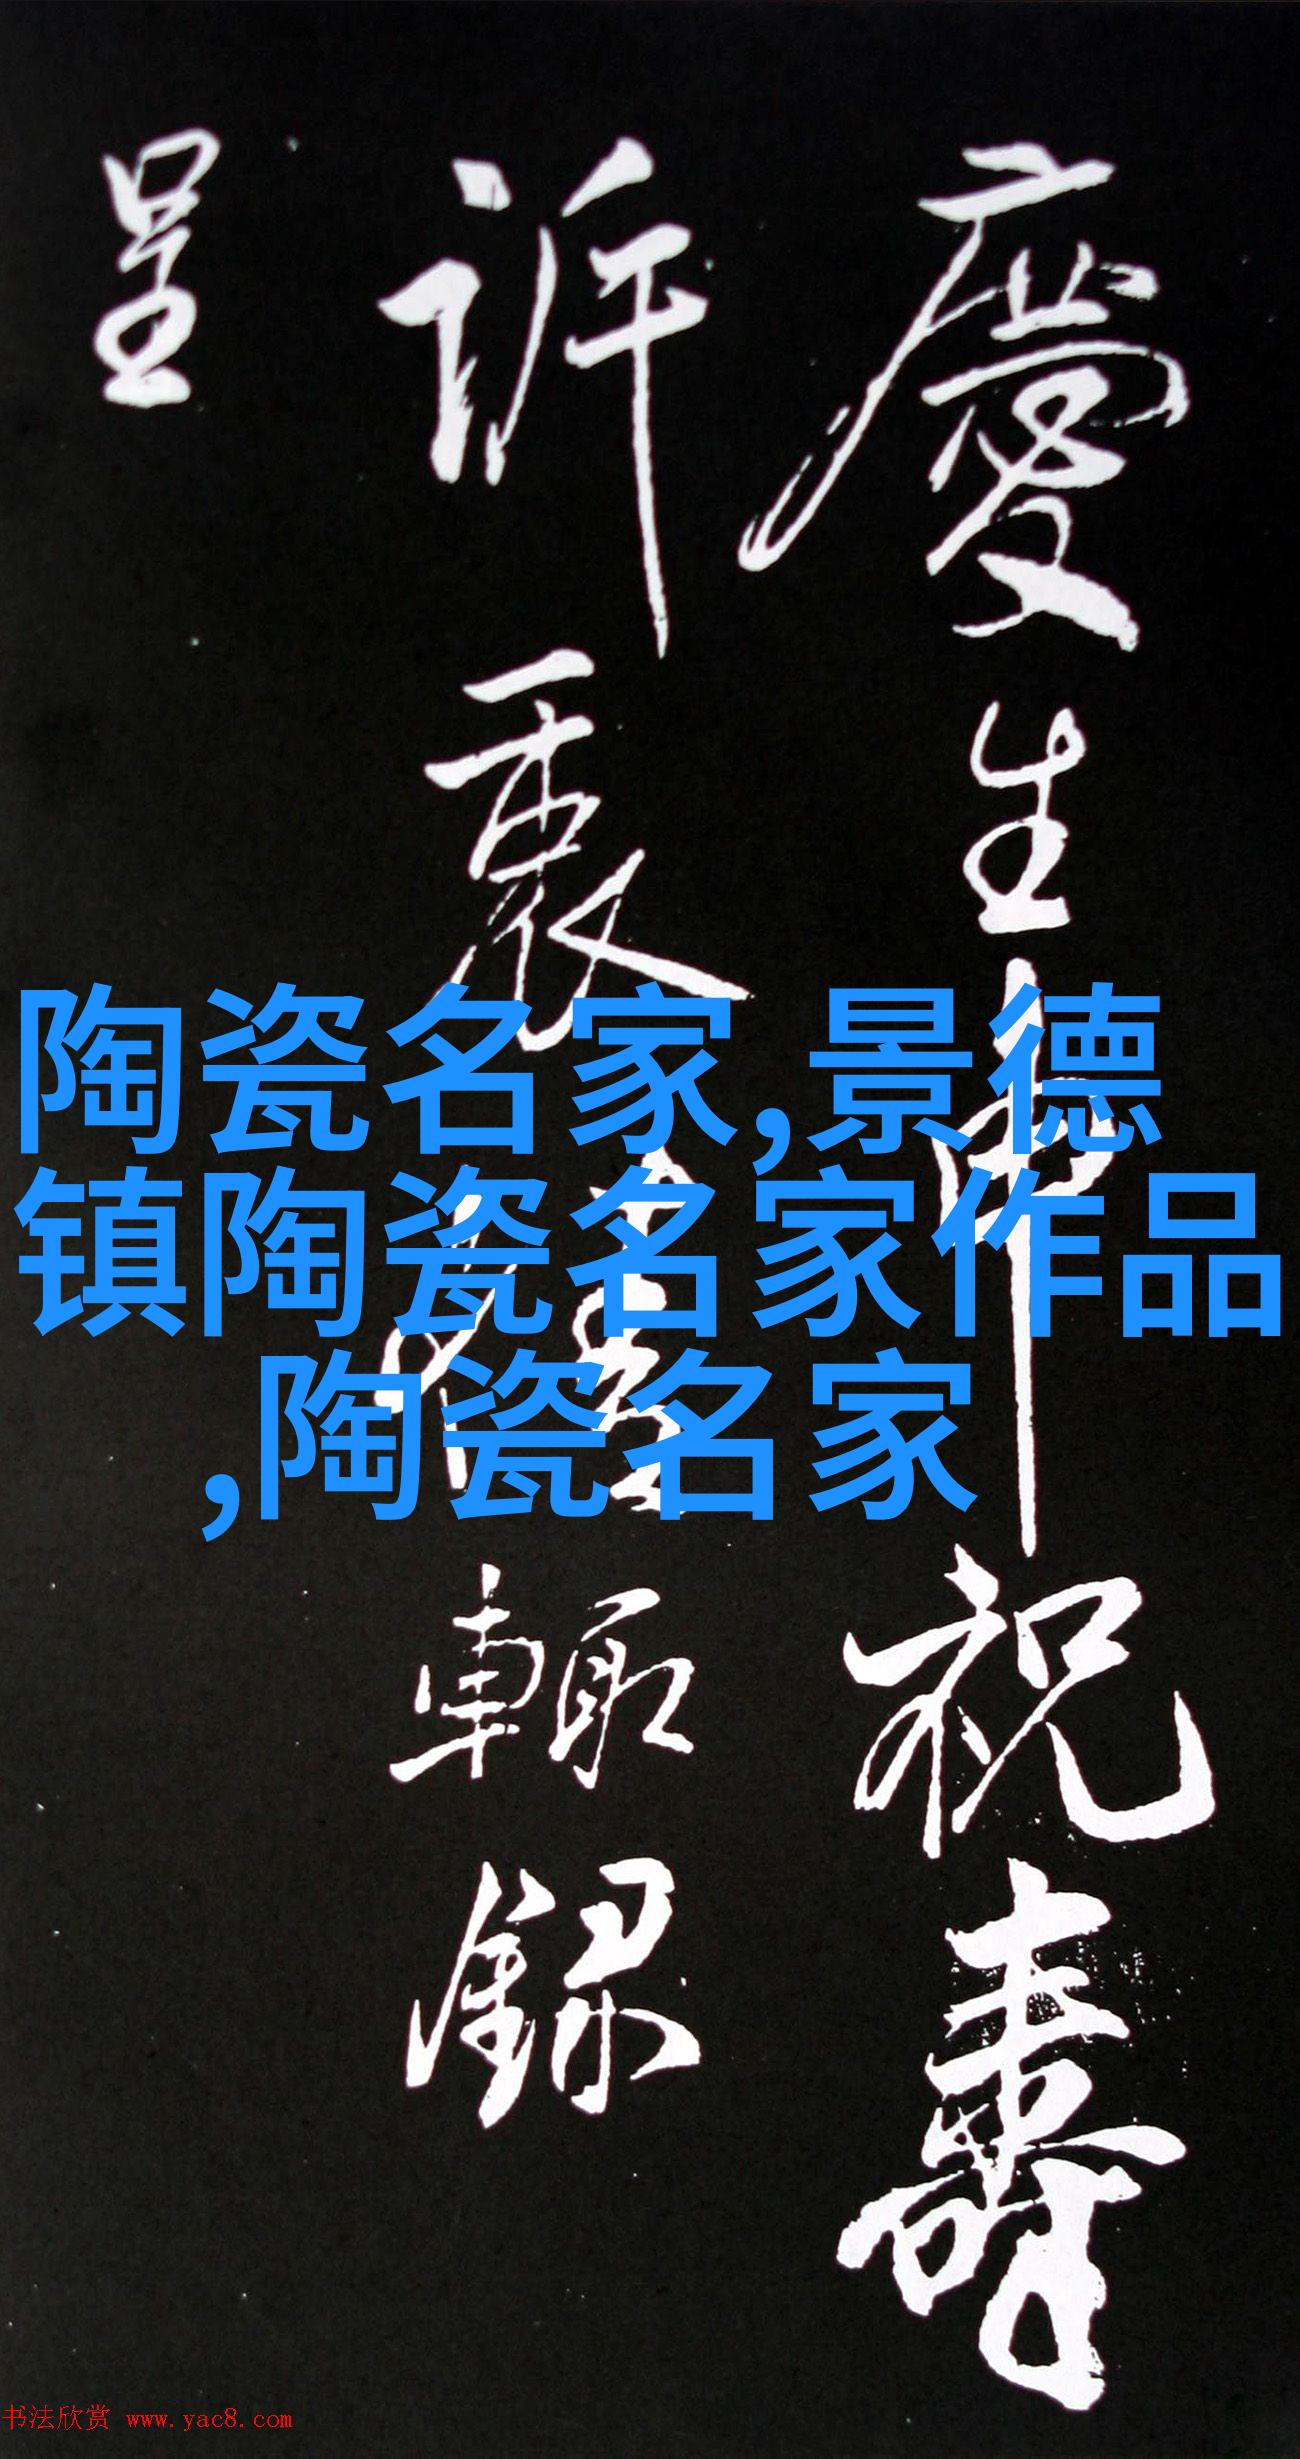 慶生申祝壽
訴衷情輒録
呈
陶瓷名家,景德
镇陶瓷名家作品
,陶瓷名家
书法欣赏 www.yac8.com